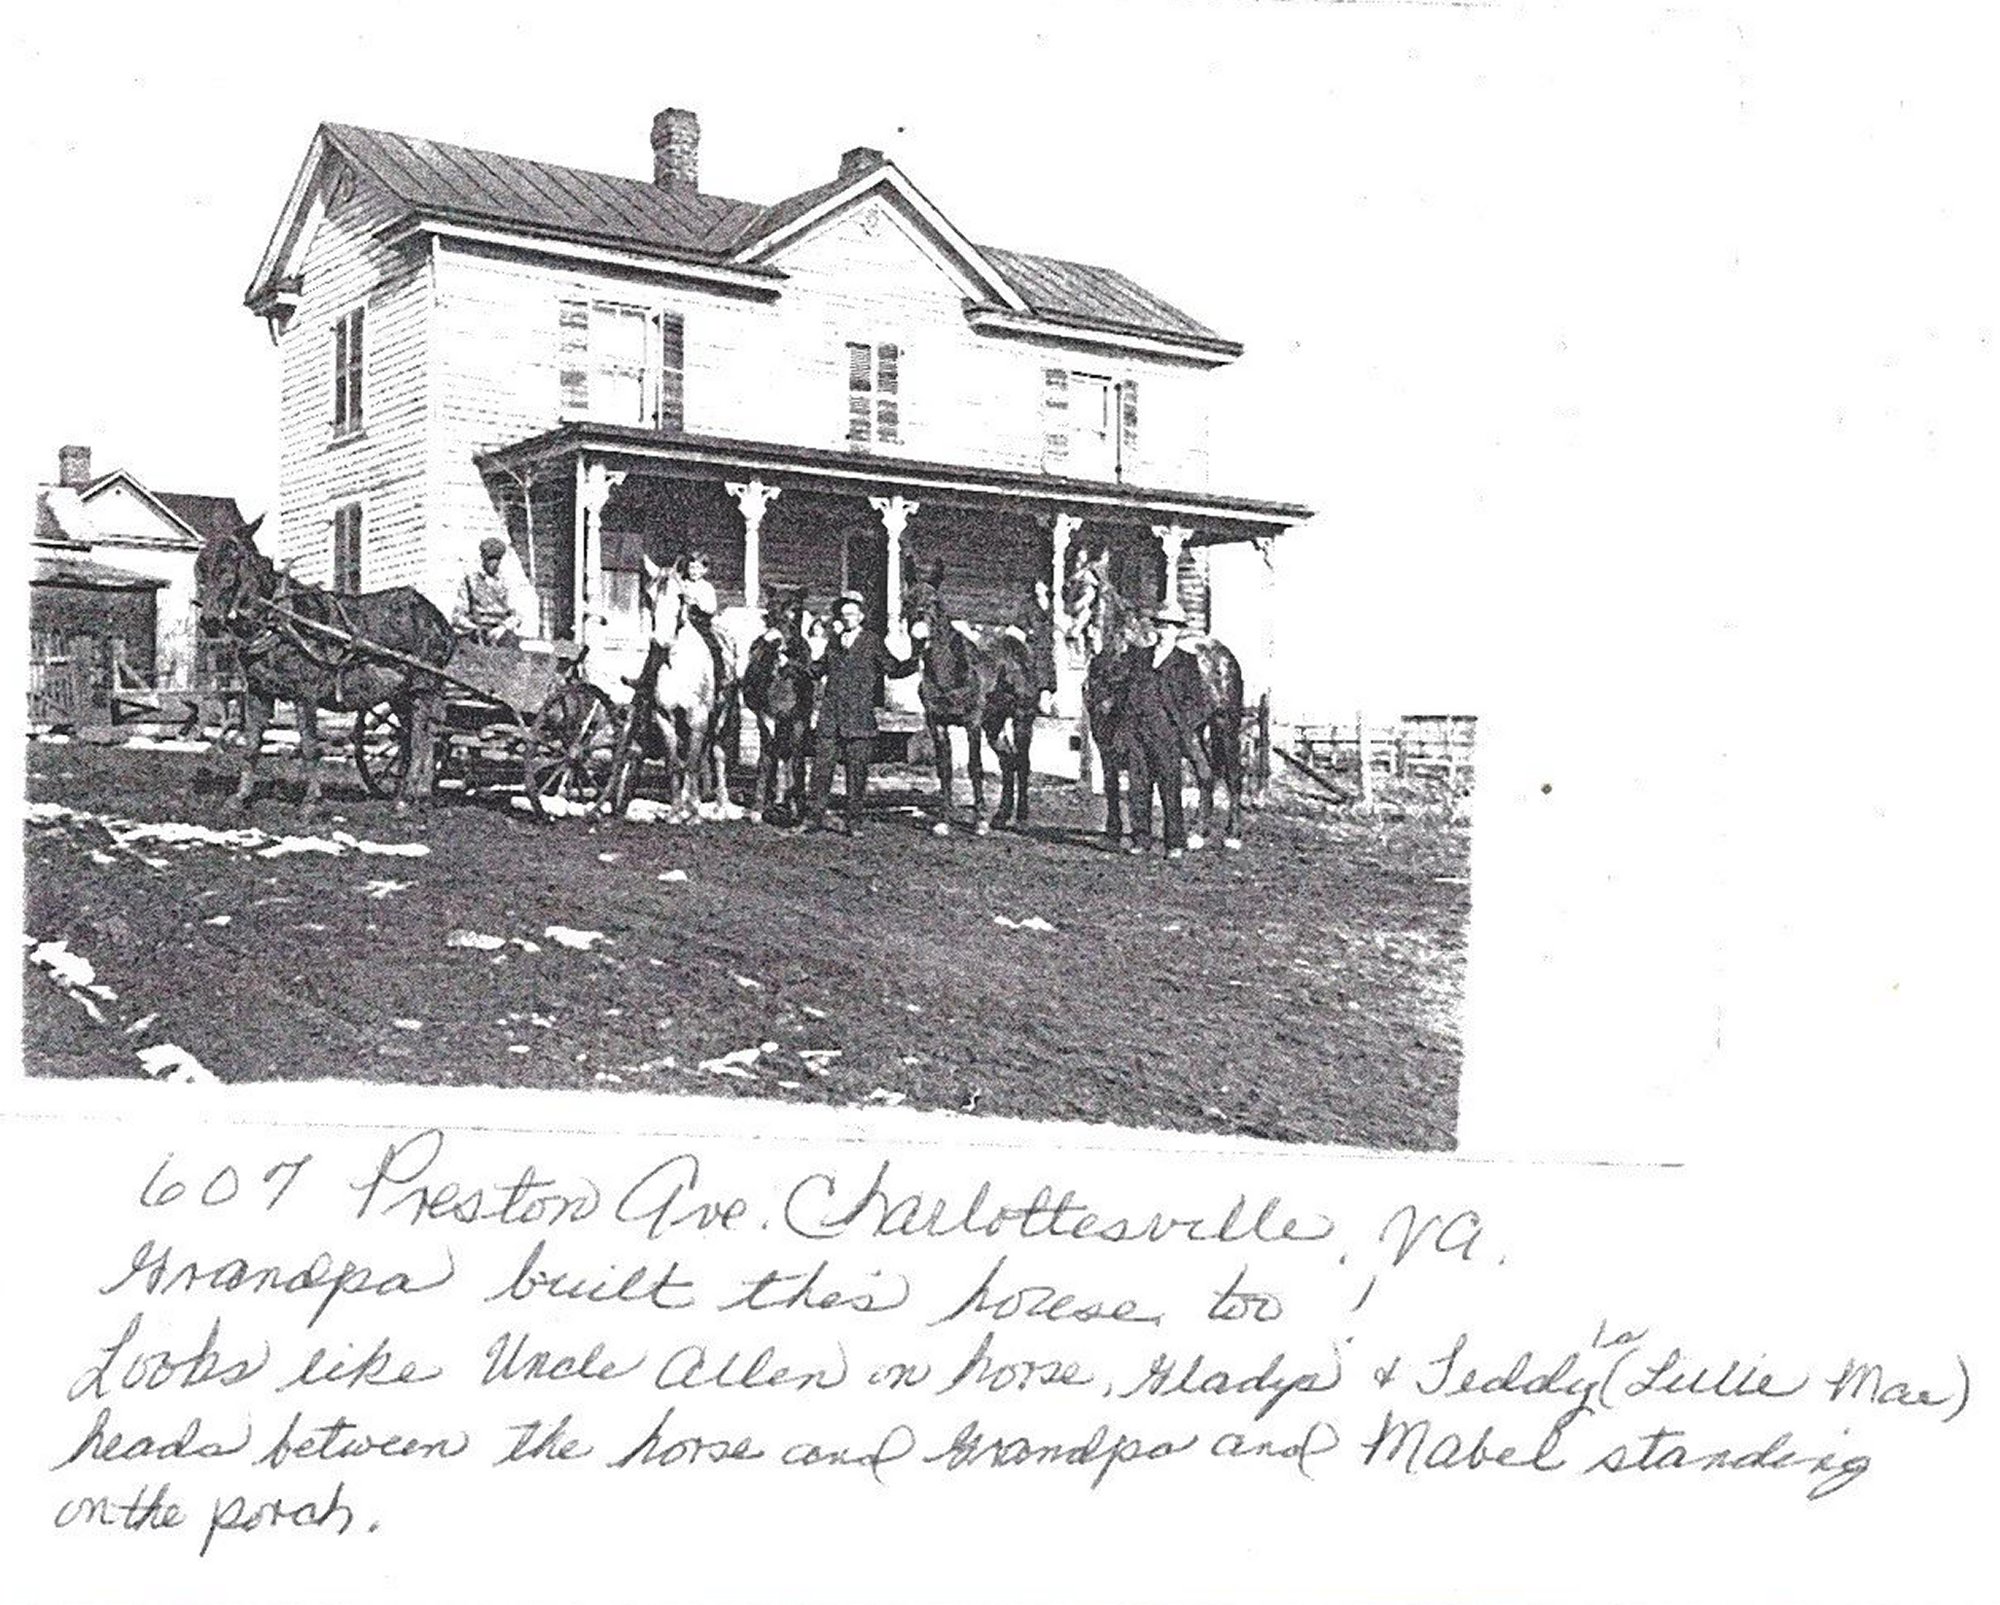 607 Preston Ave. Charlottesville, VA.
Grandpa built this house too!
Looks like Uncle Allen on horse, Gladys & Teddy's (Lillie Mae)
heads between the horse and Grandpa and Mabel standing
on the porch.